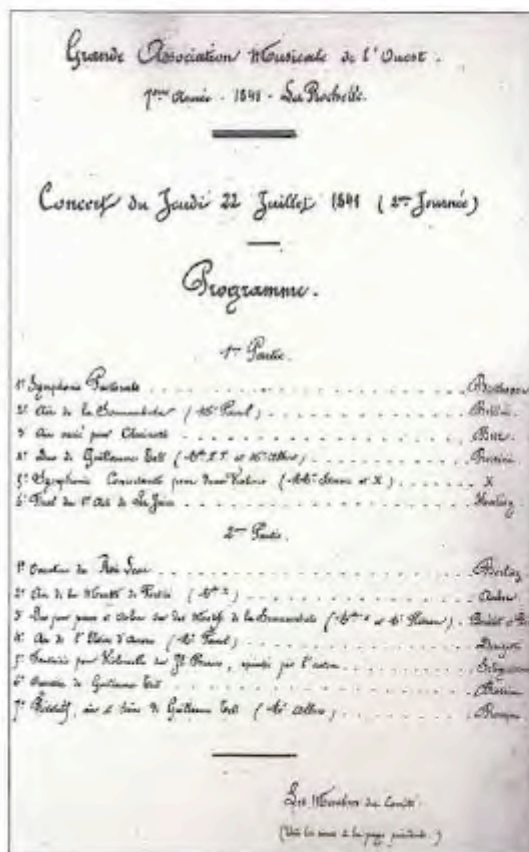 Grande Association Musicale de l'Ouest.
7ème Année - 1841 - La Rochelle.
Concert du Jeudi 22 Juillet 1841 (2me Journée)
Programme.
1re Partie.
1º Symphonie Pastorale Beethoven
2º Air de la Somnambula (Mr Paul) Bellini
3º Air varié pour Clarinette
4º Duo de Guillaume Tell ( et Mr ) Rossini
5º Symphonie Concertante pour deux Violons ( et X) X
6º Final du 1er Acte de La Juive Halévy
2me Partie.
1º Ouverture du Roi Lear Berlioz
2º Air de la Muette de Portici Auber
3º Duo pour piano et violon sur des Motifs de la Somnambula
4º Air de l'Elisire d'Amore (Mr Paul) Donizetti
5º Fantaisie pour Violoncelle sur , exécutée par l'auteur
6º Ouverture de Guillaume Tell Rossini
7º Récitatif, air et scène de Guillaume Tell Rossini
Les Membres du Comité.
(Voir les noms à la page précédente.)